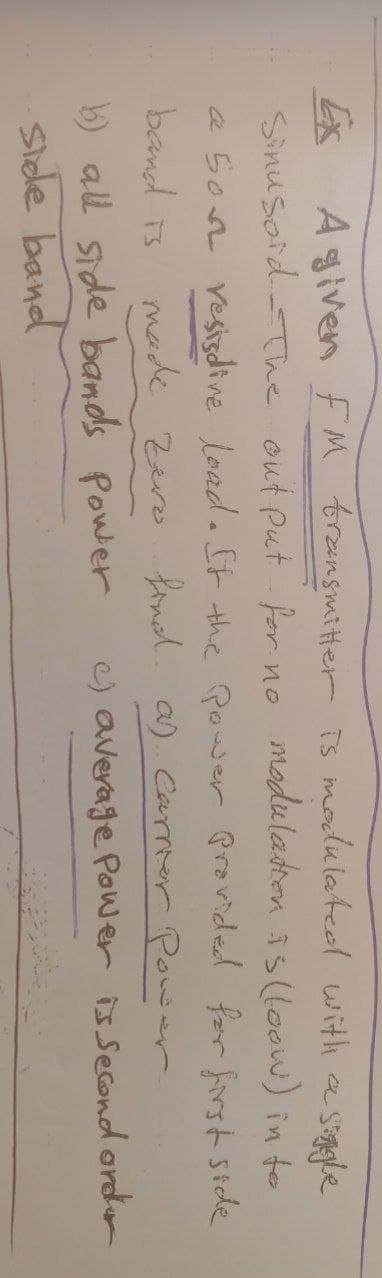 Ex A given FM transmitter is modulated with a single
sinusoid. The output for no modulation is (100w) in to
a 50Ω resisdive load. If the power provided for first side
band is made Zero find a) Carrier Power
b) all side bands power c) average power is second order
side band